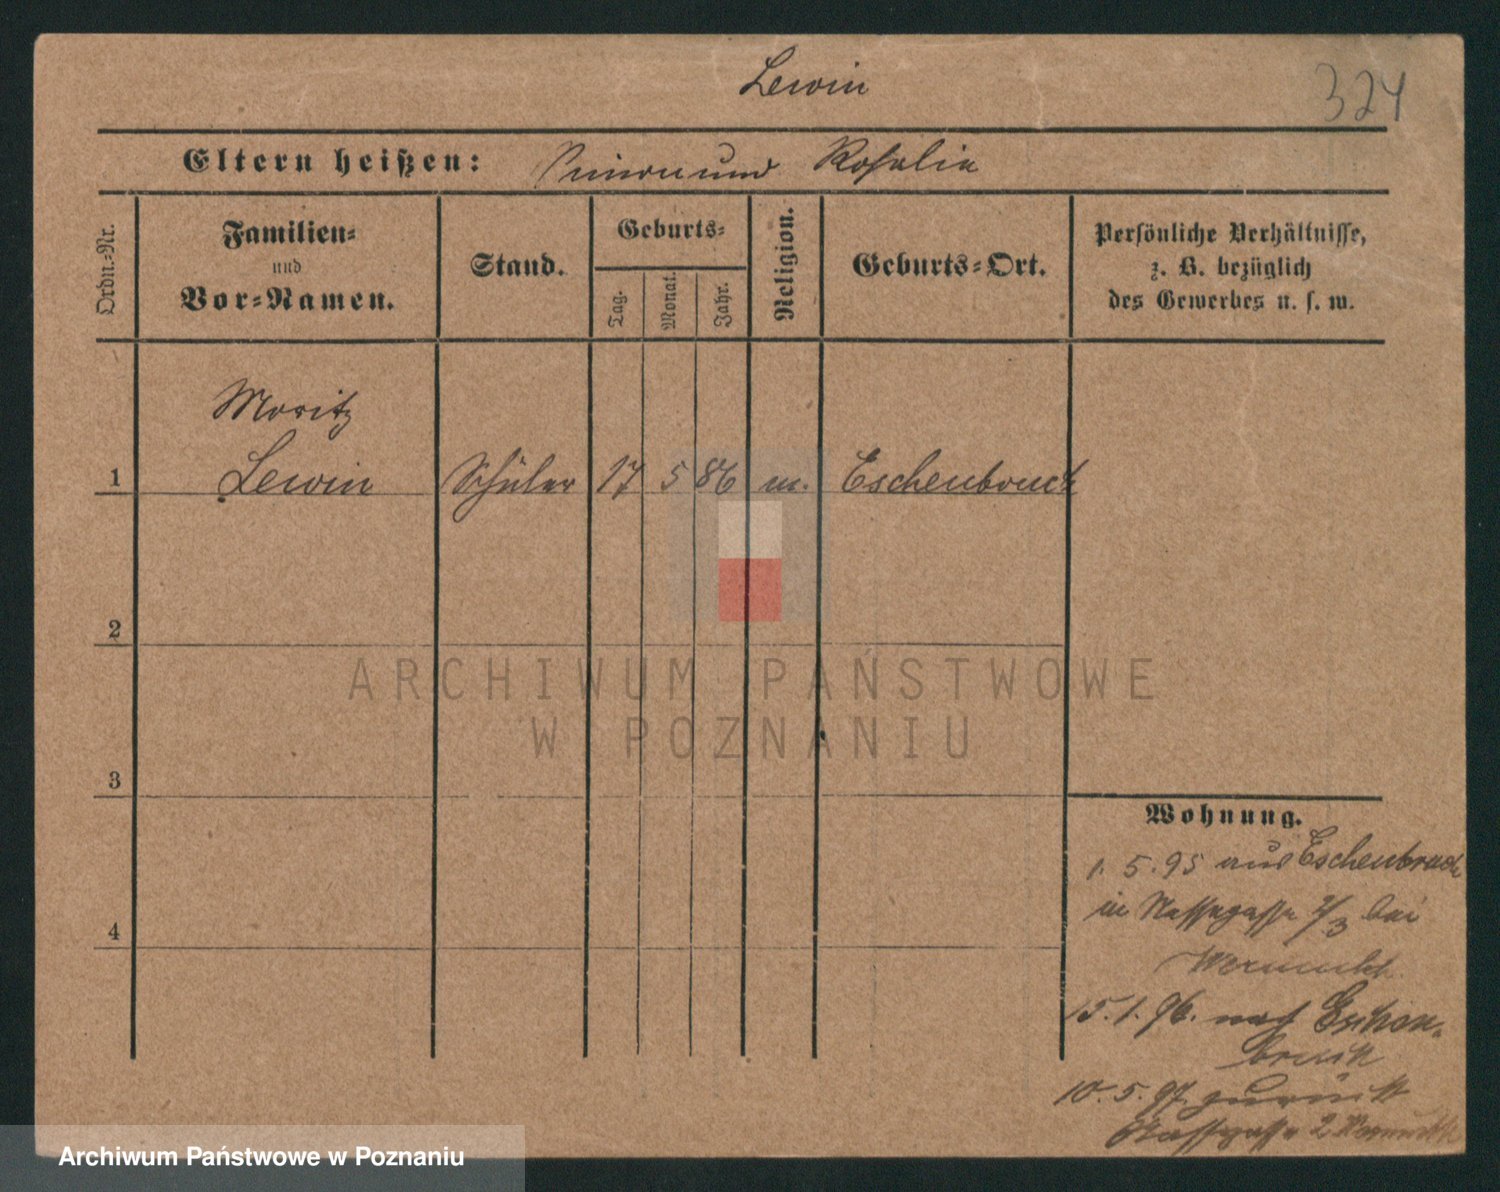 Lewin
324
Eltern heißen: Simon und Rosalie
Ordn.-Nr.
Familien-
und
Vor-Namen.
Stand.
Geburts-
Tag.
Monat.
Jahr.
Religion.
Geburts-Ort.
Persönliche Verhältnisse,
z. B. bezüglich
des Gewerbes u. s. w.
Moritz
1 Lewin Schüler 17 5 86 m. Eschenbruch
2
3
4
Wohnung.
1. 5. 95 aus Eschenbruch
in Nassegasse 2/3 bei
15. 1. 96. nach Eschen-
bruch
10. 5. 97. zurück
Nassegasse 2
ARCHIWUM PAŃSTWOWE
W POZNANIU
Archiwum Państwowe w Poznaniu